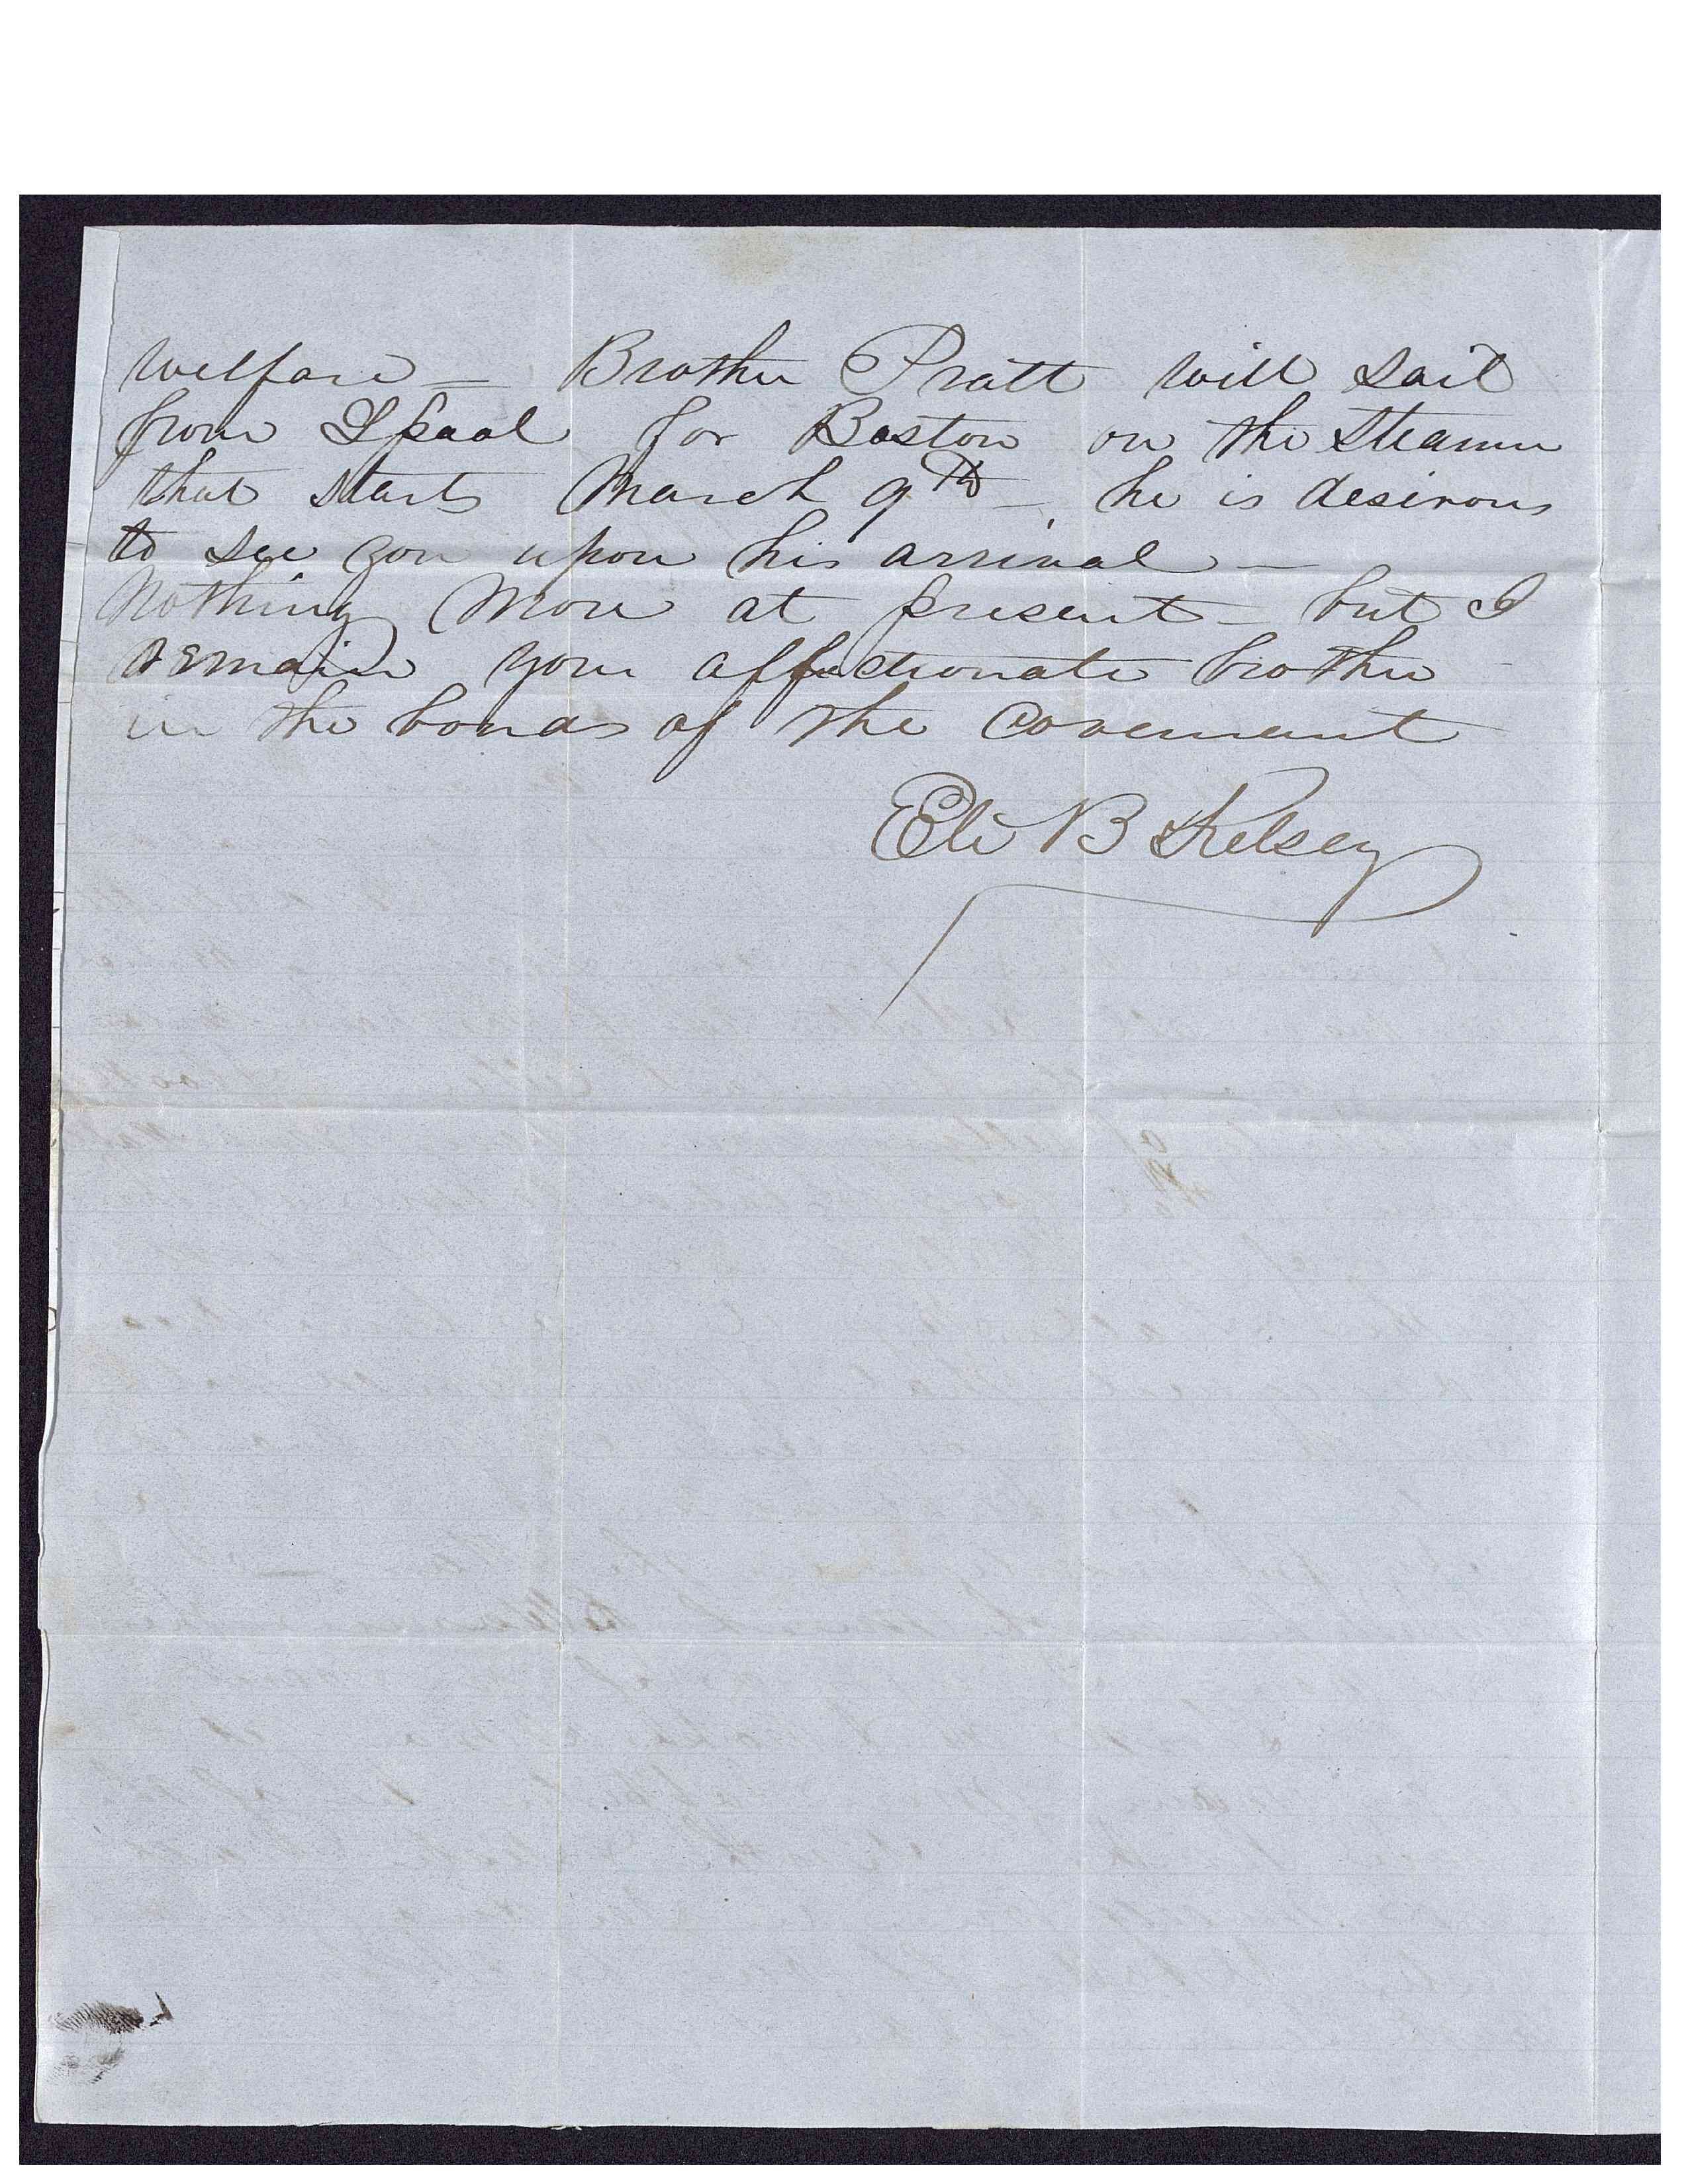 Welfare — Brother Pratt will sail
from Lpool for Boston on the Steamer
that starts March 9th —, he is desirous
to see you upon his arrival —
Nothing more at present — but I
remain your affectionate brother
in the bonds of the Covenant
Eli B Kelsey